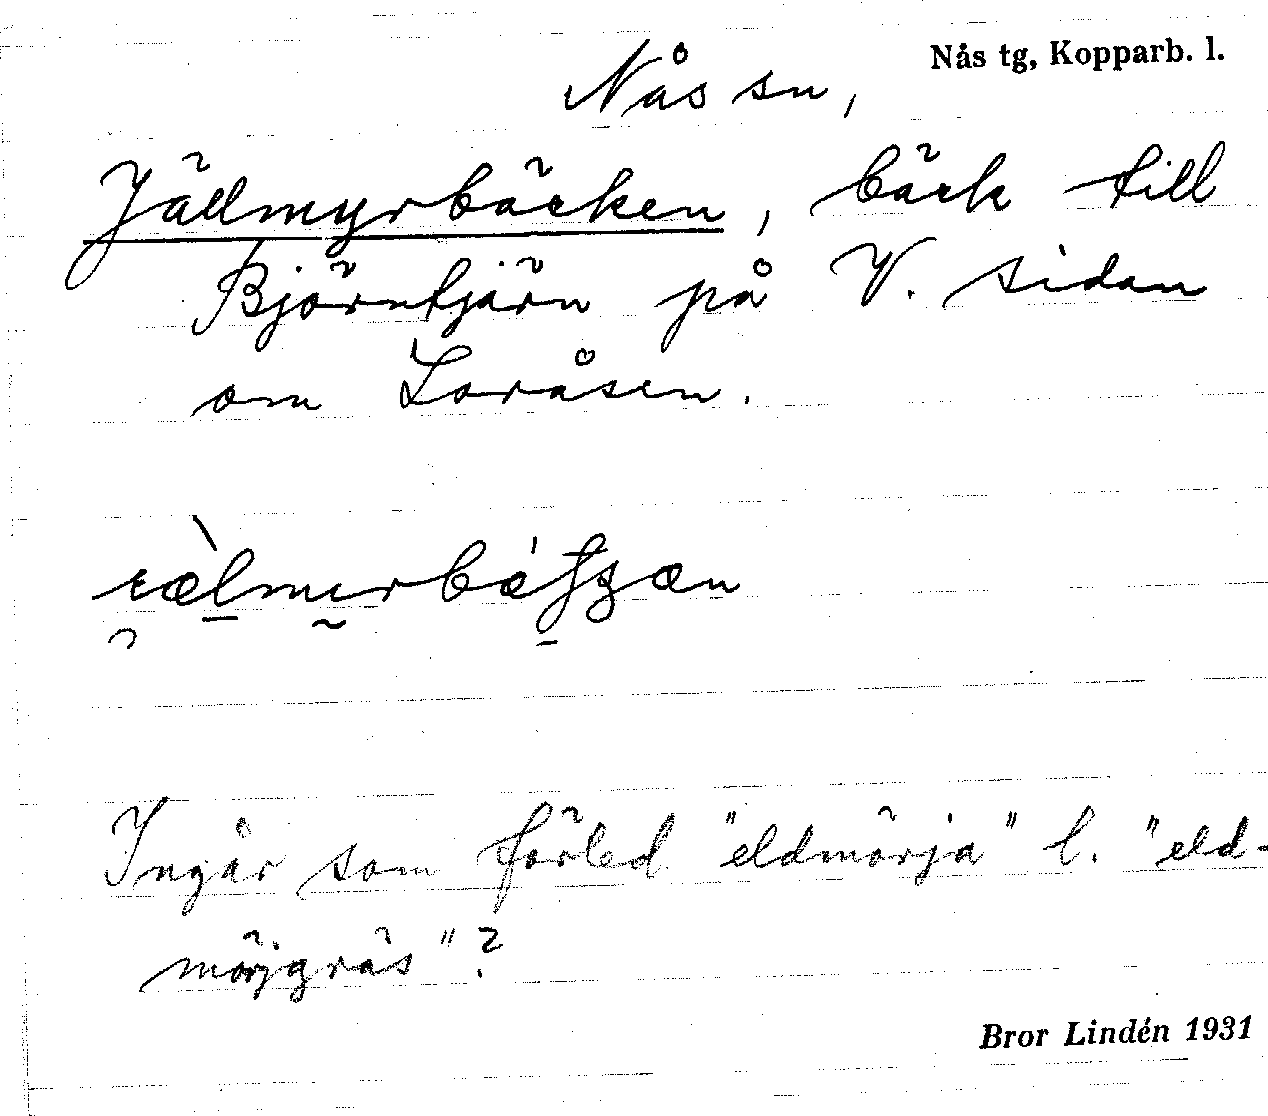 Nås tg, Kopparb. l.
Nås sn,
Jällmyrbäcken, bäck till
Björntjärn på V. sidan
om Loråsen.
Ingår som förled "eldmörja" l. "eld-
mörjgräs"?
Bror Lindén 1931